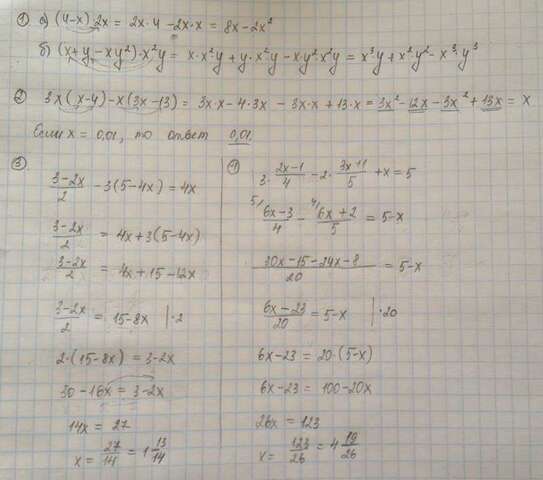 ① а) (4-x)·2x = 2x·4 - 2x·x = 8x - 2x²
б) (x+y-xy²)·x²y = x·x²y + y·x²y - xy²·x²y = x³y + x²y² - x³·y³
② 3x(x-4) - x(3x-13) = 3x·x - 4·3x - 3x·x + 13·x = 3x² - 12x - 3x² + 13x = x
Если x = 0,01, то ответ 0,01.
③
(3-2x)/2 - 3(5-4x) = 4x
(3-2x)/2 = 4x + 3(5-4x)
(3-2x)/2 = 4x + 15 - 12x
(3-2x)/2 = 15 - 8x |·2
2·(15-8x) = 3-2x
30 - 16x = 3-2x
14x = 27
x = 27/14 = 1 13/14
④ 3·(2x-1)/4 - 2·(3x+1)/5 + x = 5
5/ (6x-3)/4 - 4/ (6x+2)/5 = 5-x
(30x-15-24x-8)/20 = 5-x
(6x-23)/20 = 5-x |·20
6x-23 = 20·(5-x)
6x-23 = 100-20x
26x = 123
x = 123/26 = 4 19/26